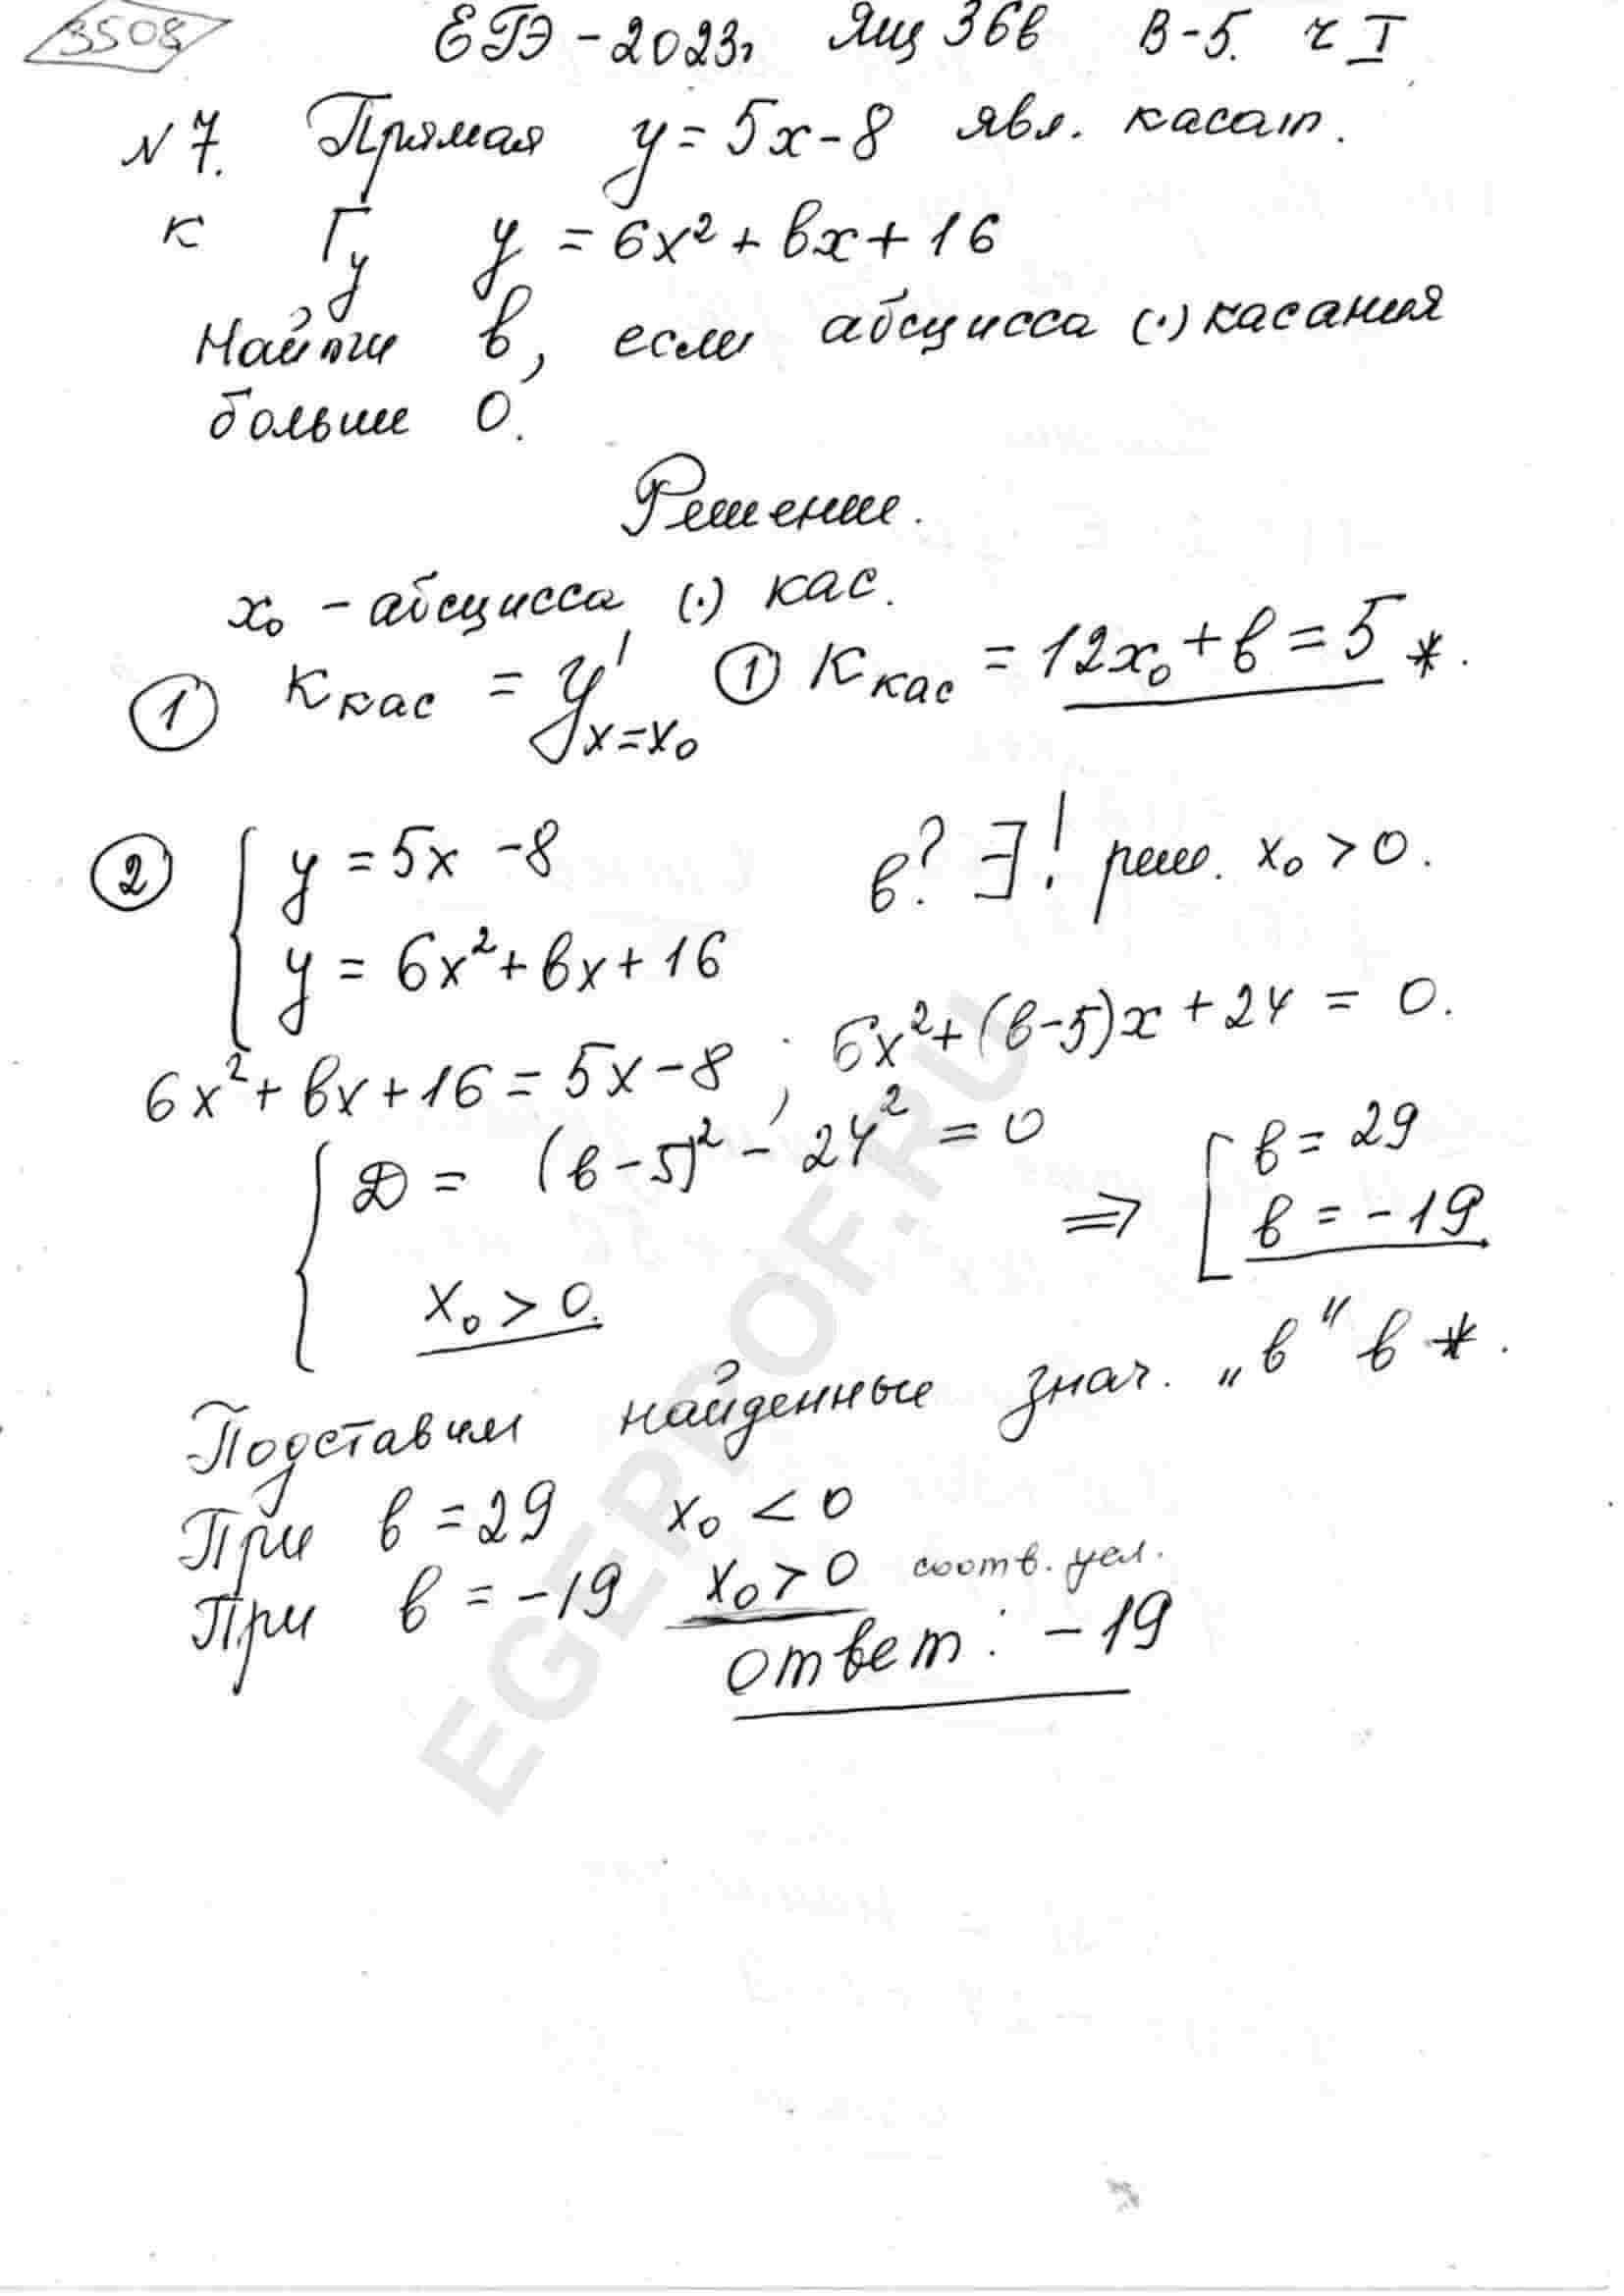 3508
ЕГЭ-2023г Ящ 36в В-5. ч I
№7. Прямая y = 5x - 8 явл. касат.
к Гy y = 6x² + вx + 16
Найти в, если абсцисса (·) касания
больше 0.
Решение.
x₀ - абсцисса (·) кас.
① Kкас = y'x=x₀ ① Kкас = 12x₀ + в = 5 *.
② { y = 5x - 8 в? ∃! реш. x₀ > 0.
y = 6x² + вx + 16
6x² + вx + 16 = 5x - 8 ; 6x² + (в-5)x + 24 = 0.
{ D = (в-5)² - 24² = 0 ⇒ [ в = 29
x₀ > 0. в = -19
Подставим найденные знач. „в" в *.
При в = 29 x₀ < 0
При в = -19 x₀ > 0 соотв. усл.
ответ: -19
EGEPROF.RU